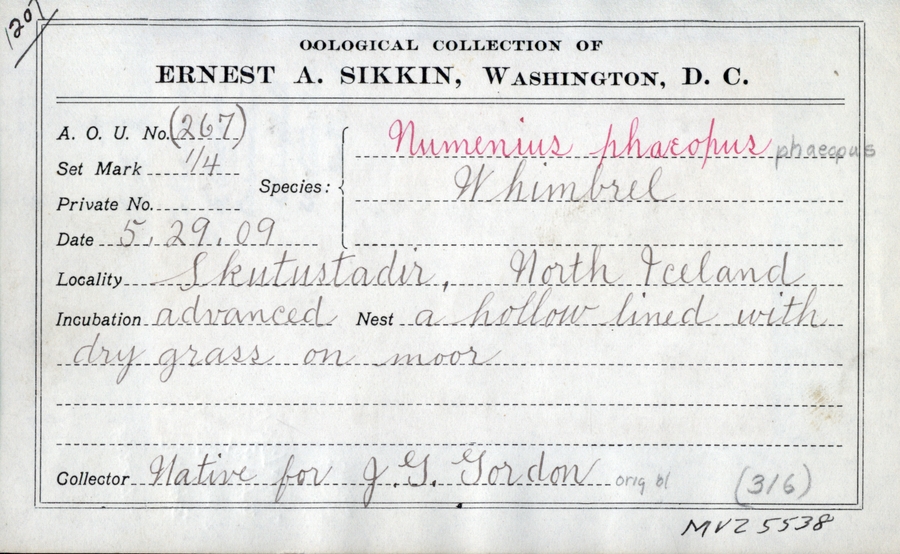 120
OOLOGICAL COLLECTION OF
ERNEST A. SIKKIN, WASHINGTON, D. C.
A. O. U. No. (267)
Set Mark 1/4
Private No.
Date 5.29.09
Species:
Numenius phaeopus phaeopus
Whimbrel
Locality Skutustadir, North Iceland
Incubation advanced Nest a hollow lined with
dry grass on moor
Collector Native for J.G. Gordon orig bl (316)
MVZ 5538